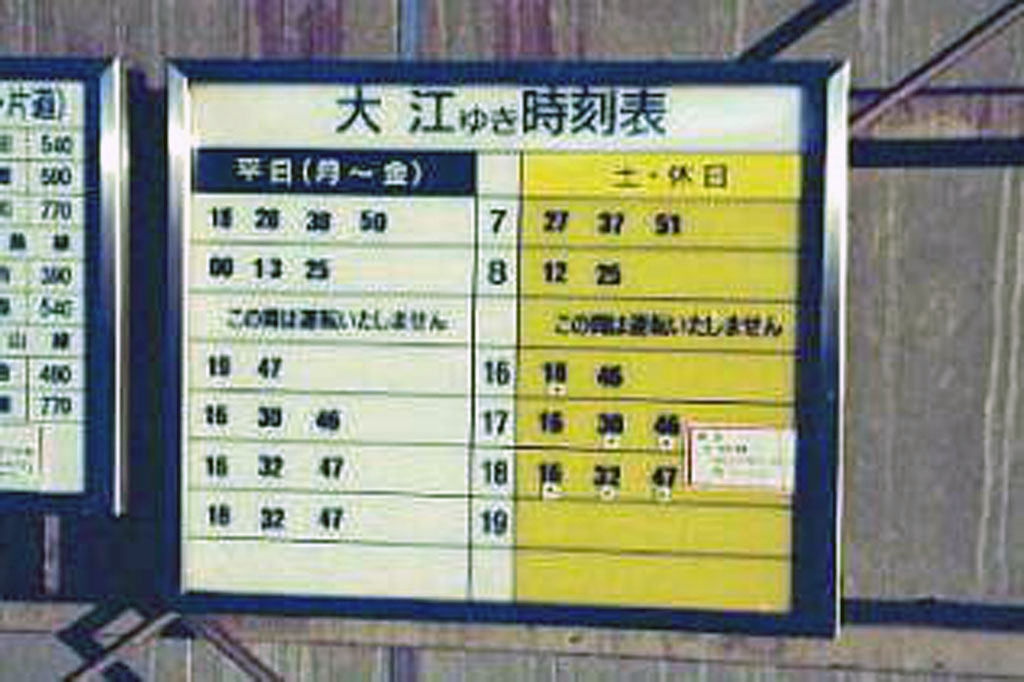 ・片道)
540
590
770
線
390
540
山 線
490
770
大 江ゆき時刻表
平日(月～金) 土・休日
16 28 38 50 7 27 37 51
00 13 25 8 12 25
この間は運転いたしません この間は運転いたしません
19 47 16 18 46
16 30 46 17 16 30 46
16 32 47 18 16 32 47
18 32 47 19